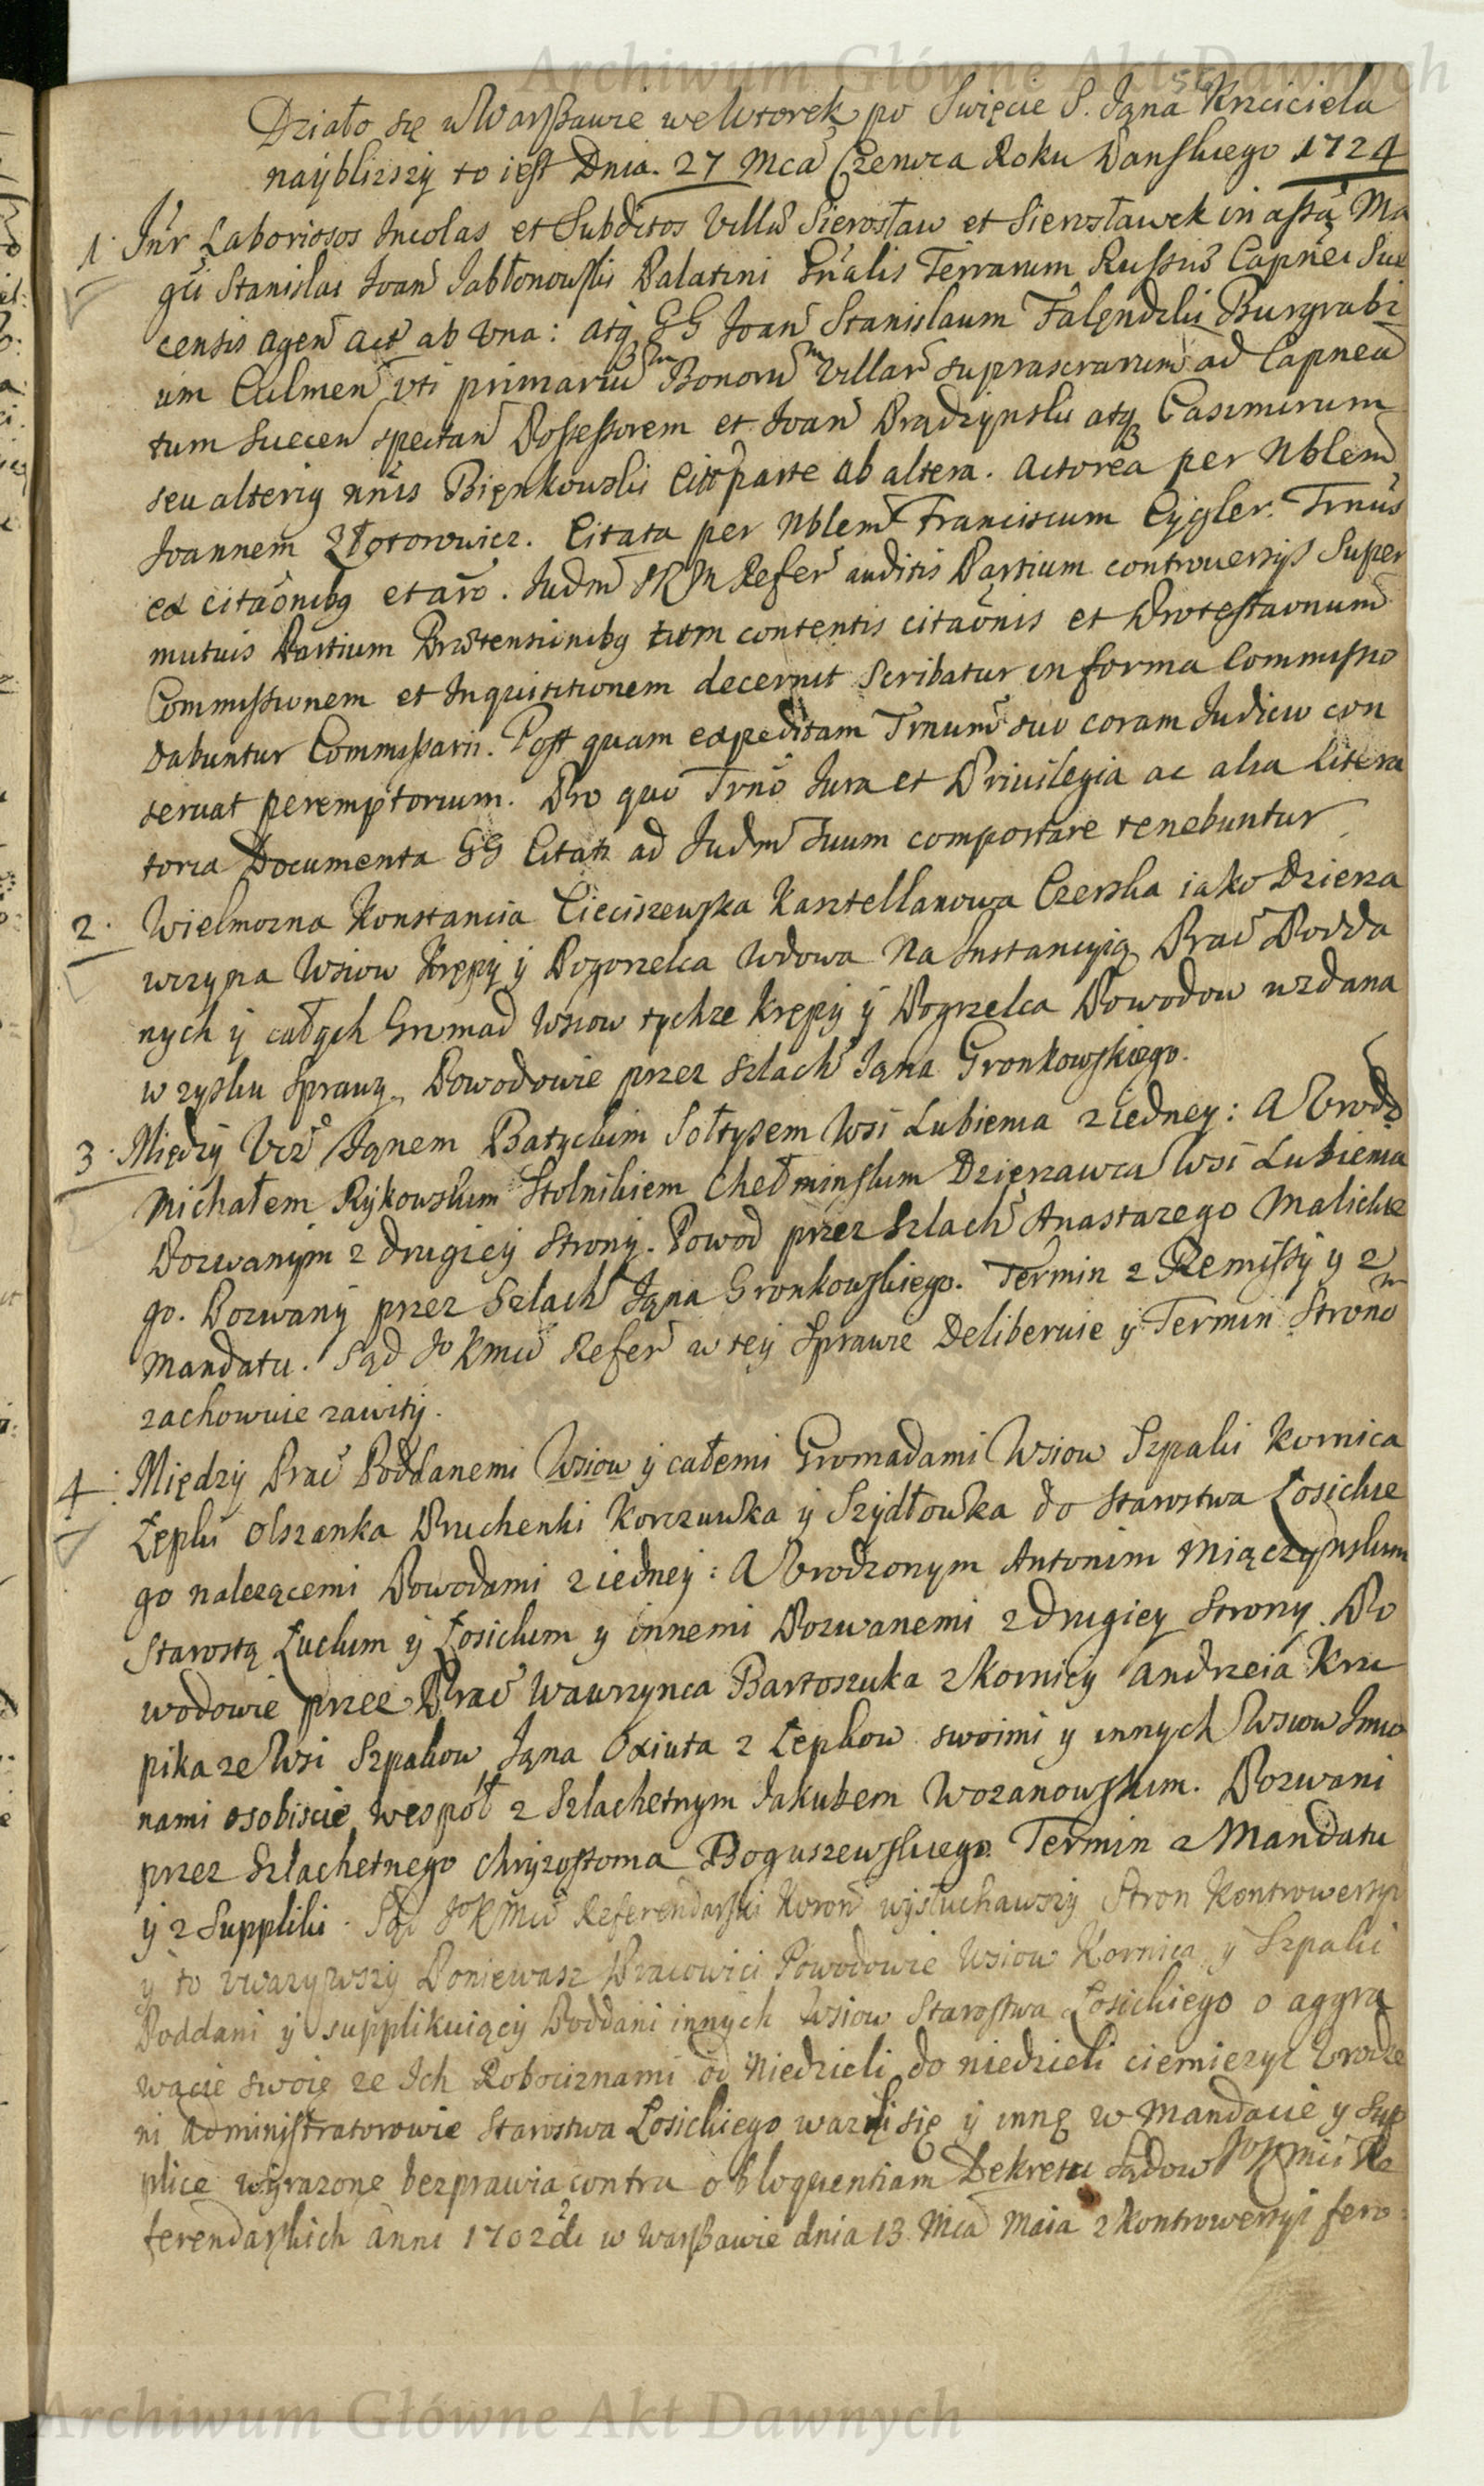 Archiwum Główne Akt Dawnych
Działo się w Warszawie we Wtorek po Swięcie S. Jąna Krzciciela
naybliszy to iest Dnia. 27 Mca Czerwca Roku Panskiego 1724
1. Intr Laboriosos Incolas et Subditos Villae Sierosław et Sierosławek in assą Ma
gci Stanislai Joan Jabłonowski Palatini Gnalis Terrarum Russiae Capnei Sue
censis agen Act ab una: atq GG Joan Stanislaum Falęndzki Burgrabi
um Culmen uti primariu Bonoru Villar suprascrarum ad Capnea
tum Suecen spectan Possessorem et Joan Prądzynski atq Casimirum
seu alteriq nnis Bięnkowski Citt parte ab altera. Actorea per Nblem
Joannem Złotorowicz. Citata per Nblem Franciscum Cygler. Trnus
ex citaonibq et aro. Judm SRM Refer auditis Partium controuersijs Super
mutuis Partium Praetensionibq tum contentis citaonis et Protestaonum
Commissionem et Inquisitionem decernit scribatur in forma Commissio
dabuntur Commissarii. Post quam expeditam Trnum suo coram Judicio con
seruat peremptorium. Pro quo Trno Jura et Priuilegia ac alia Litera
toria Documenta GG Citati ad Judm suum comportare tenebuntur
2. Wielmozna Konstancia Cieciszewska Kasztellanowa Czerska iako Dzierza
wczyna Wsiow Krępy y Pogorzelca Wdowa Na Instancyią Prac Podda
nych y całych Gromad Wsiow tychze Krępy y Pogrzelca Powodow wzdana
w zysku Sprawy. Powodowie przez Szlach Jąna Gronkowskięgo.
3. Między Ucz Jąnem Batyckim Sołtysem Wsi Lubienia z iedney: A Urodz
Michałem Rykowskim Stolnikiem Chełminskim Dzierzawca Wsi Lubienia
Pozwanym z drugiey Strony. Powod przez Szlach Anastazego Malickie
go. Pozwany przez Szlach Jąna Gronkowskiego. Termin z Remissy y z
Mandatu. Sąd Jo Kmci Refer w tey Sprawie Deliberuie y Termin Strono
zachowuie zawity.
4. Między Prac Poddanemi Wsiow y całemi Gromadami Wsiow Szpaki Kornica
Łepki Olszanka Pruchenki Korczuwka y Szydłowka do Starostwa Łosickie
go nalezącemi Powodami z iedney: A Urodzonym Antonim Miączynskim
Starostą Łuckim y Łosickim y innemi Pozwanemi z drugiey Strony. Po
wodowie przez Prac Wawrzynca Bartoszuka z Kornicy Andrzeia Kru
pika ze Wsi Szpakow Jąna Oxiuta z Łepkow swoimi y innych Wsiow Imio
nami osobiscie wespół z Szlachetnym Jakubem Wozanowskim. Pozwani
przez Szlachetnego Chryzostoma Boguszewskiego. Termin z Mandatu
y z Suppliki. Sąd Jo KMci Referendarski Koron wysłuchawszy Stron Kontrowersyi
y to uwazywszy Poniewasz Pracowici Powodowie Wsiow Kornica y Szpaki
Poddani y supplikuiący Poddani innych Wsiow Starostwa Łosickiego o aggra
wacie swoie ze Ich Robociznami od Niedzieli do niedzieli ciemiezyc Urodze
ni Administratorowie Starostwa Łosickiego wazyli się y inne w Mandacie y Sup
plice wyrazone bezprawia contra obloquentiam Dekretu Sądow Jo KMci Re
ferendarskich Anni 1702 di w Warszawie dnia 13. Mca Maia z kontrowersyi fero
Archiwum Główne Akt Dawnych